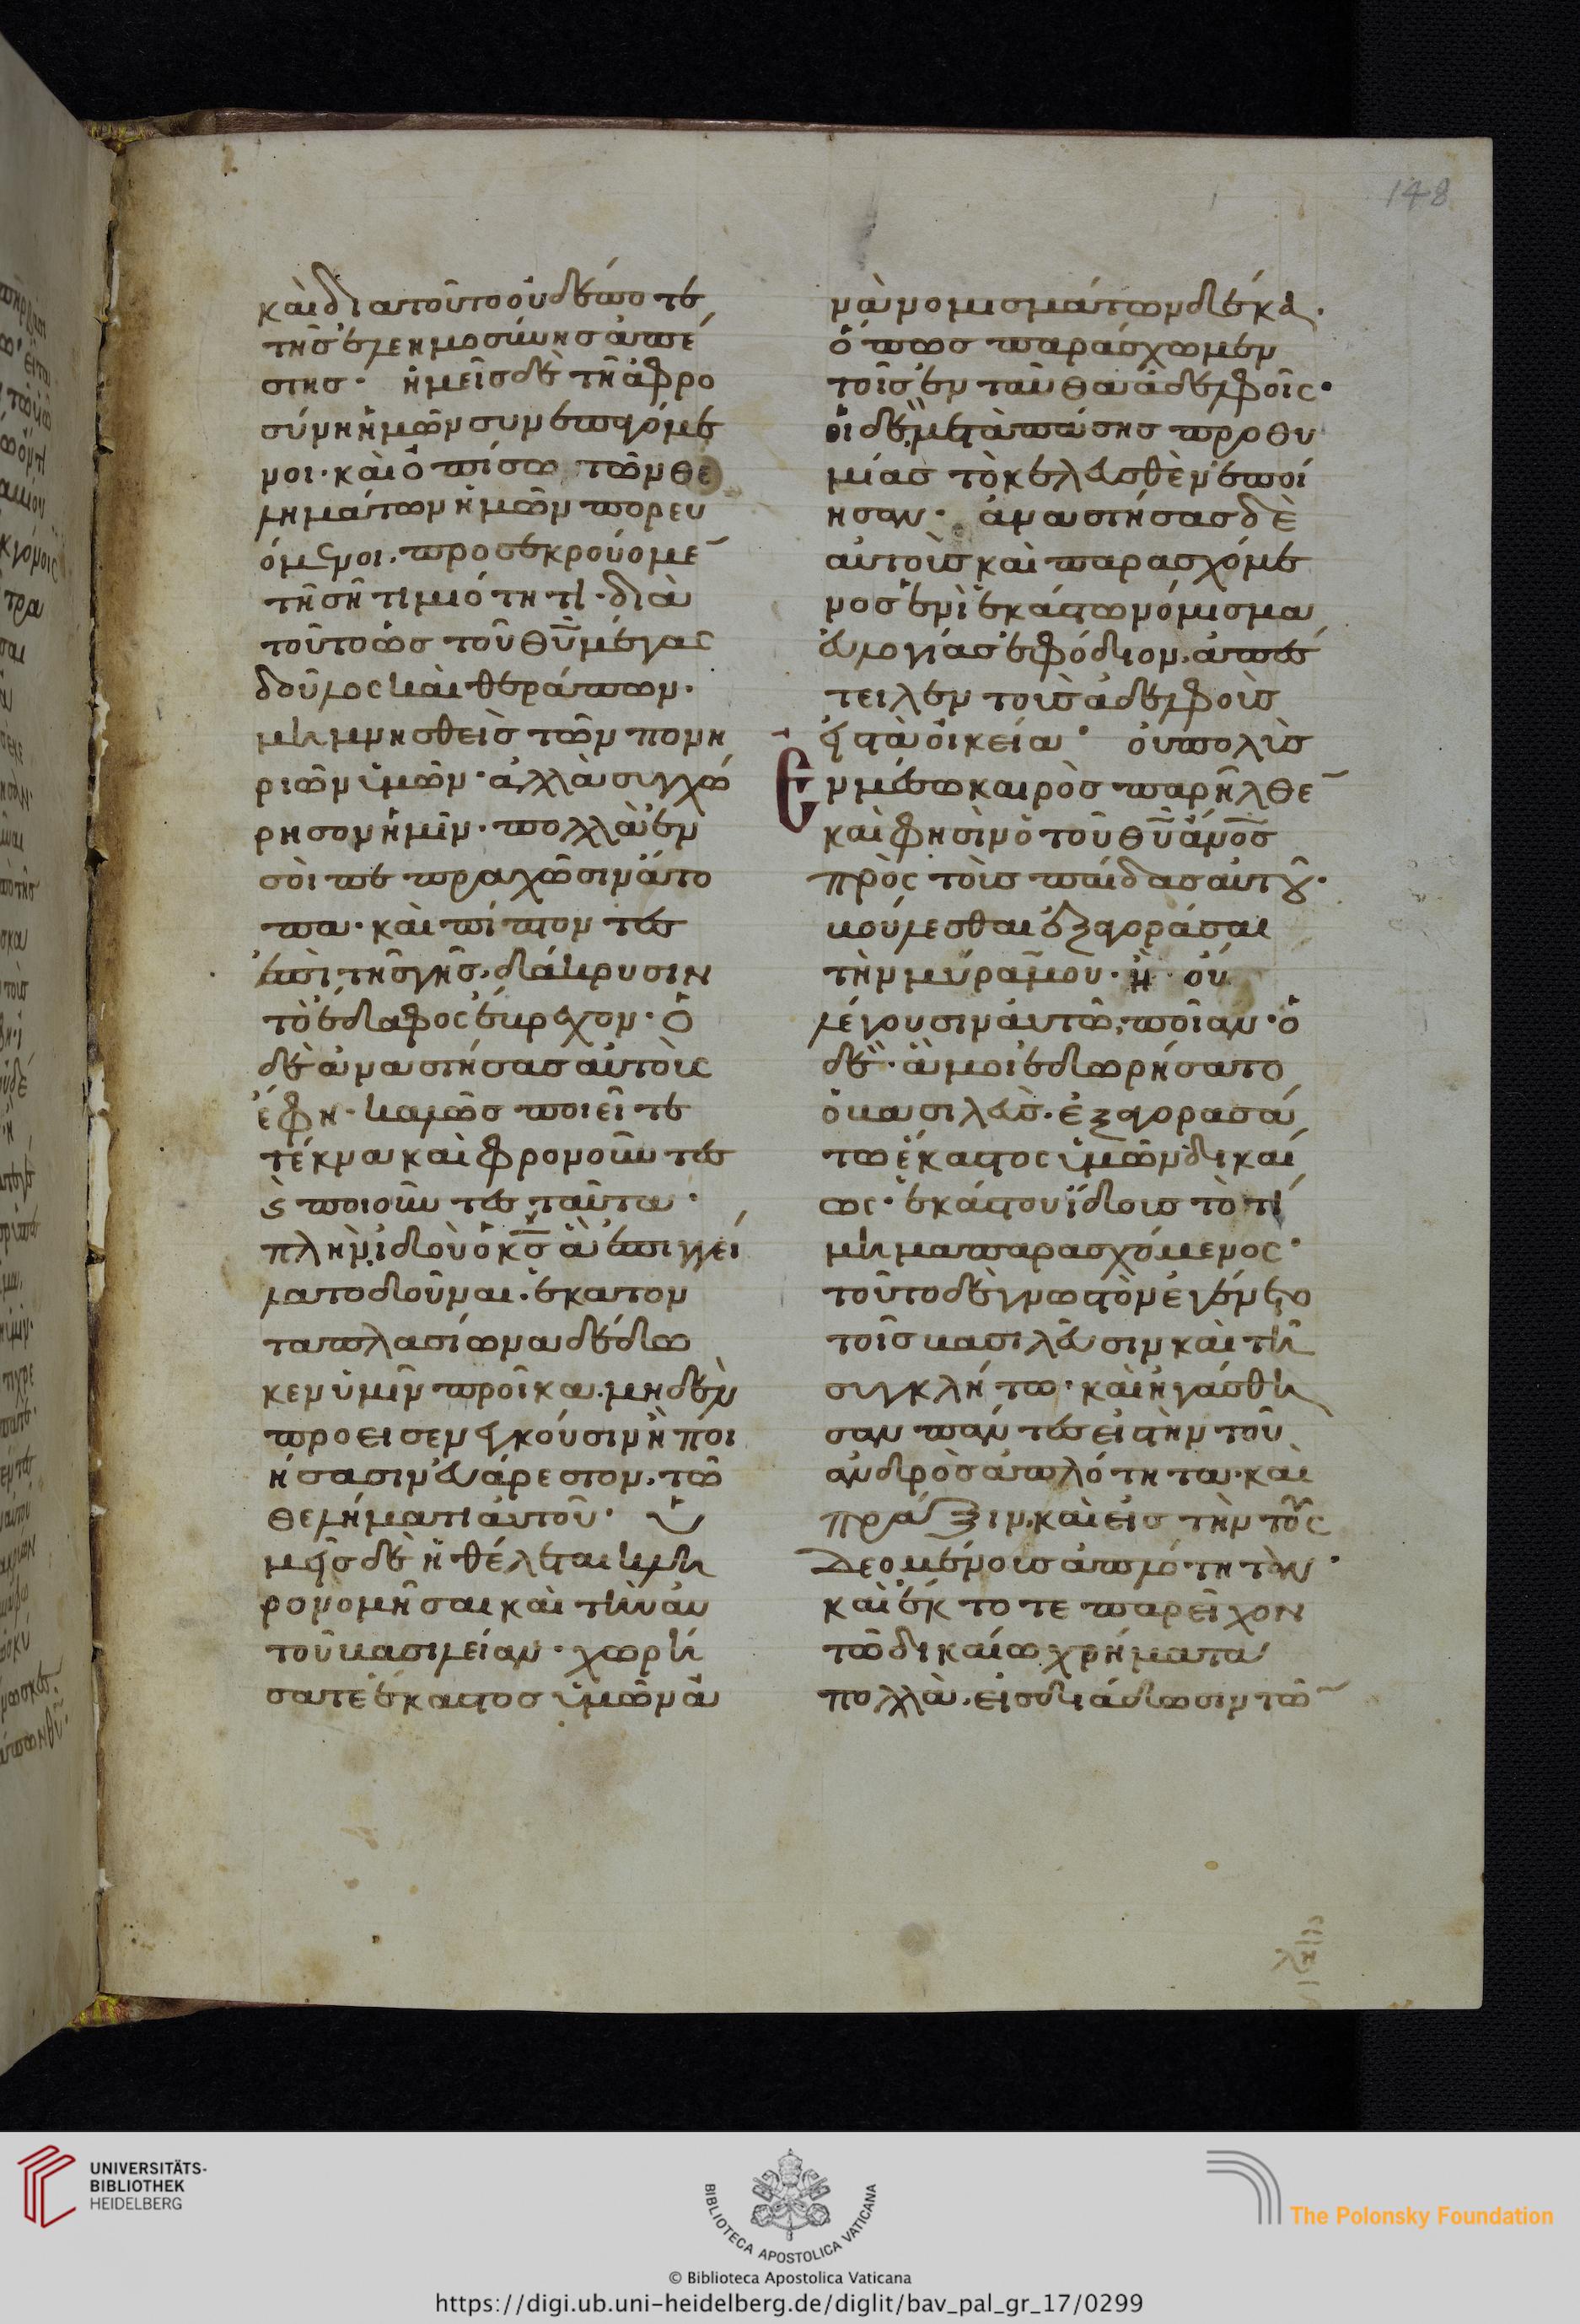 148
καὶ διατοῦτο οὐδέποτε
τῆς ἐλεημοσύνης ἀπέ
στης· ἡμεῖς δὲ τῆ ἀφρο
σύνη ἡμῶν συνεπόμε
νοι· καὶ ὀπίσω τῶν θε
λημάτων ἡμῶν πορευ
όμενοι· προσεκρούομε̅
τῆ σῆ τιμιότητι· διὰ
τοῦτο ὡς τοῦ θυ̅ μέγας
δοῦλος καὶ θεράπων·
μὴ μνησθεὶς τῶν πονη
ριῶν ὑμῶν· ἀλλὰ συγχώ
ρησον ἡμῖν· πολλὰ ἐν
σοὶ πεπραχῶσιν ἄτο
πα· καὶ πίπτοντες
ἐπὶ τῆς γῆς· δάκρυσιν
τὸ ἔδαφος ἔβρεχον· Ὁ
δὲ ἀναστήσας αὐτοὺς
ἔφη· καλῶς ποιεῖτε
τέκνα καὶ φρονοῦντες
ϛ ποιοῦντες ταῦτα·
πλὴν ἰδοὺ ὁ κς̅ ἃ ἐπιγγεί
λατο δοῦναι· ἑκατον
ταπλασίωνα δέδω
κεν ὑμῖν προῖκα· μηδὲν
προεισενεγκοῦσιν ἢ ποι
ήσασιν εὐάρεστον· τῶ
θελήματι αὐτοῦ· ὑ
μεῖς δὲ εἰ θέλεται κλη
ρονομῆσαι καὶ τὴν αὐ
τοῦ βασιλείαν· χωρή
σατε ἕκαστος ὑμῶν ἀ
νὰ νομισμάτων δέκα·
ὅπως παράσχωμεν
τοῖς ἐνταῦθα ἀδελφοῖς·
οἱ δὲ μετὰ πάσης προθυ
μίας τὸ κελευσθὲν ἐποί
ησαν· ἀναστήσας δὲ
αὐτοὺς καὶ παρασχόμε
νος ἑνὶ ἑκάστω νόμισμα
εὐλογίας ἐφόδιον· ἀπέσ
τειλεν τοὺς ἀδελφοὺς
εἰς τὰ οἰκεία· οὐ πολὺς
Ἐν μέσω καιρὸς παρῆλθε̅
καὶ φησὶν ὁ τοῦ θυ̅ ἄνο̅ς
πρὸς τοὺς παίδας αὐτοῦ·
βούλεσθαι ἐξαγοράσαι
τὴν μύραν μου· ἢ οὐ
λέγουσιν αὐτῶ· ποῖαν· ὁ
δὲ· ἃ μοι ἐδωρήσατο
ὁ βασιλεύς· ἐξαγορασά
τω ἕκαστος ὑμῶν δικαί
ως· ἑκάστου ἰδίους τὸ τί
μημα παρασχόμενος·
τοῦτο δὲ γνωστὸν ἐγένετο
τοῖς βασιλεῦσιν καὶ τῆ
συγκλήτω· καὶ ἠγάσθη
σαν πάντες εἰς τὴν τοῦ
ἀνδρὸς ἁπλότητα· καὶ
πράξιν· καὶ εἰς τὴν τοῖς
δεομένοις ἁπλότηταν·
καὶ ἔκτοτε παρεῖχον
τῶ δικαίω χρήματα
πολλὰ· εἰς διάδωσιν τῶ̅
UNIVERSITÄTS-
BIBLIOTHEK
HEIDELBERG
BIBLIOTECA APOSTOLICA VATICANA
The Polonsky Foundation
© Biblioteca Apostolica Vaticana
https://digi.ub.uni-heidelberg.de/diglit/bav_pal_gr_17/0299